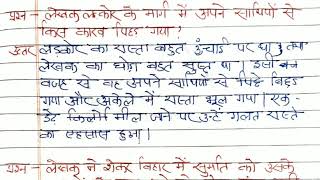 प्रश्न - लेखक लङकोर के मार्ग में अपने साथियों से
किस कारण पिछड़ गया?
उत्तर लङकोर का रास्ता बहुत ऊंचाई पर था तथा
लेखक का घोड़ा बहुत सुस्त था। इसी
वजह से वह अपने साथियों से पिछे बिछड़
गया और अकेले में रास्ता भूल गया। एक-
डेढ़ किलोमील जाने पर उन्हें गलत रास्ते
का एहसास हुआ।
प्रश्न - लेखक ने शेकर विहार में सुमति को उसके